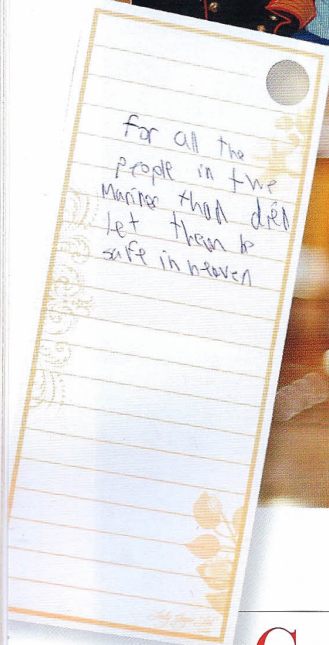 for all the
people in the
Marines that died
let them be
safe in heaven